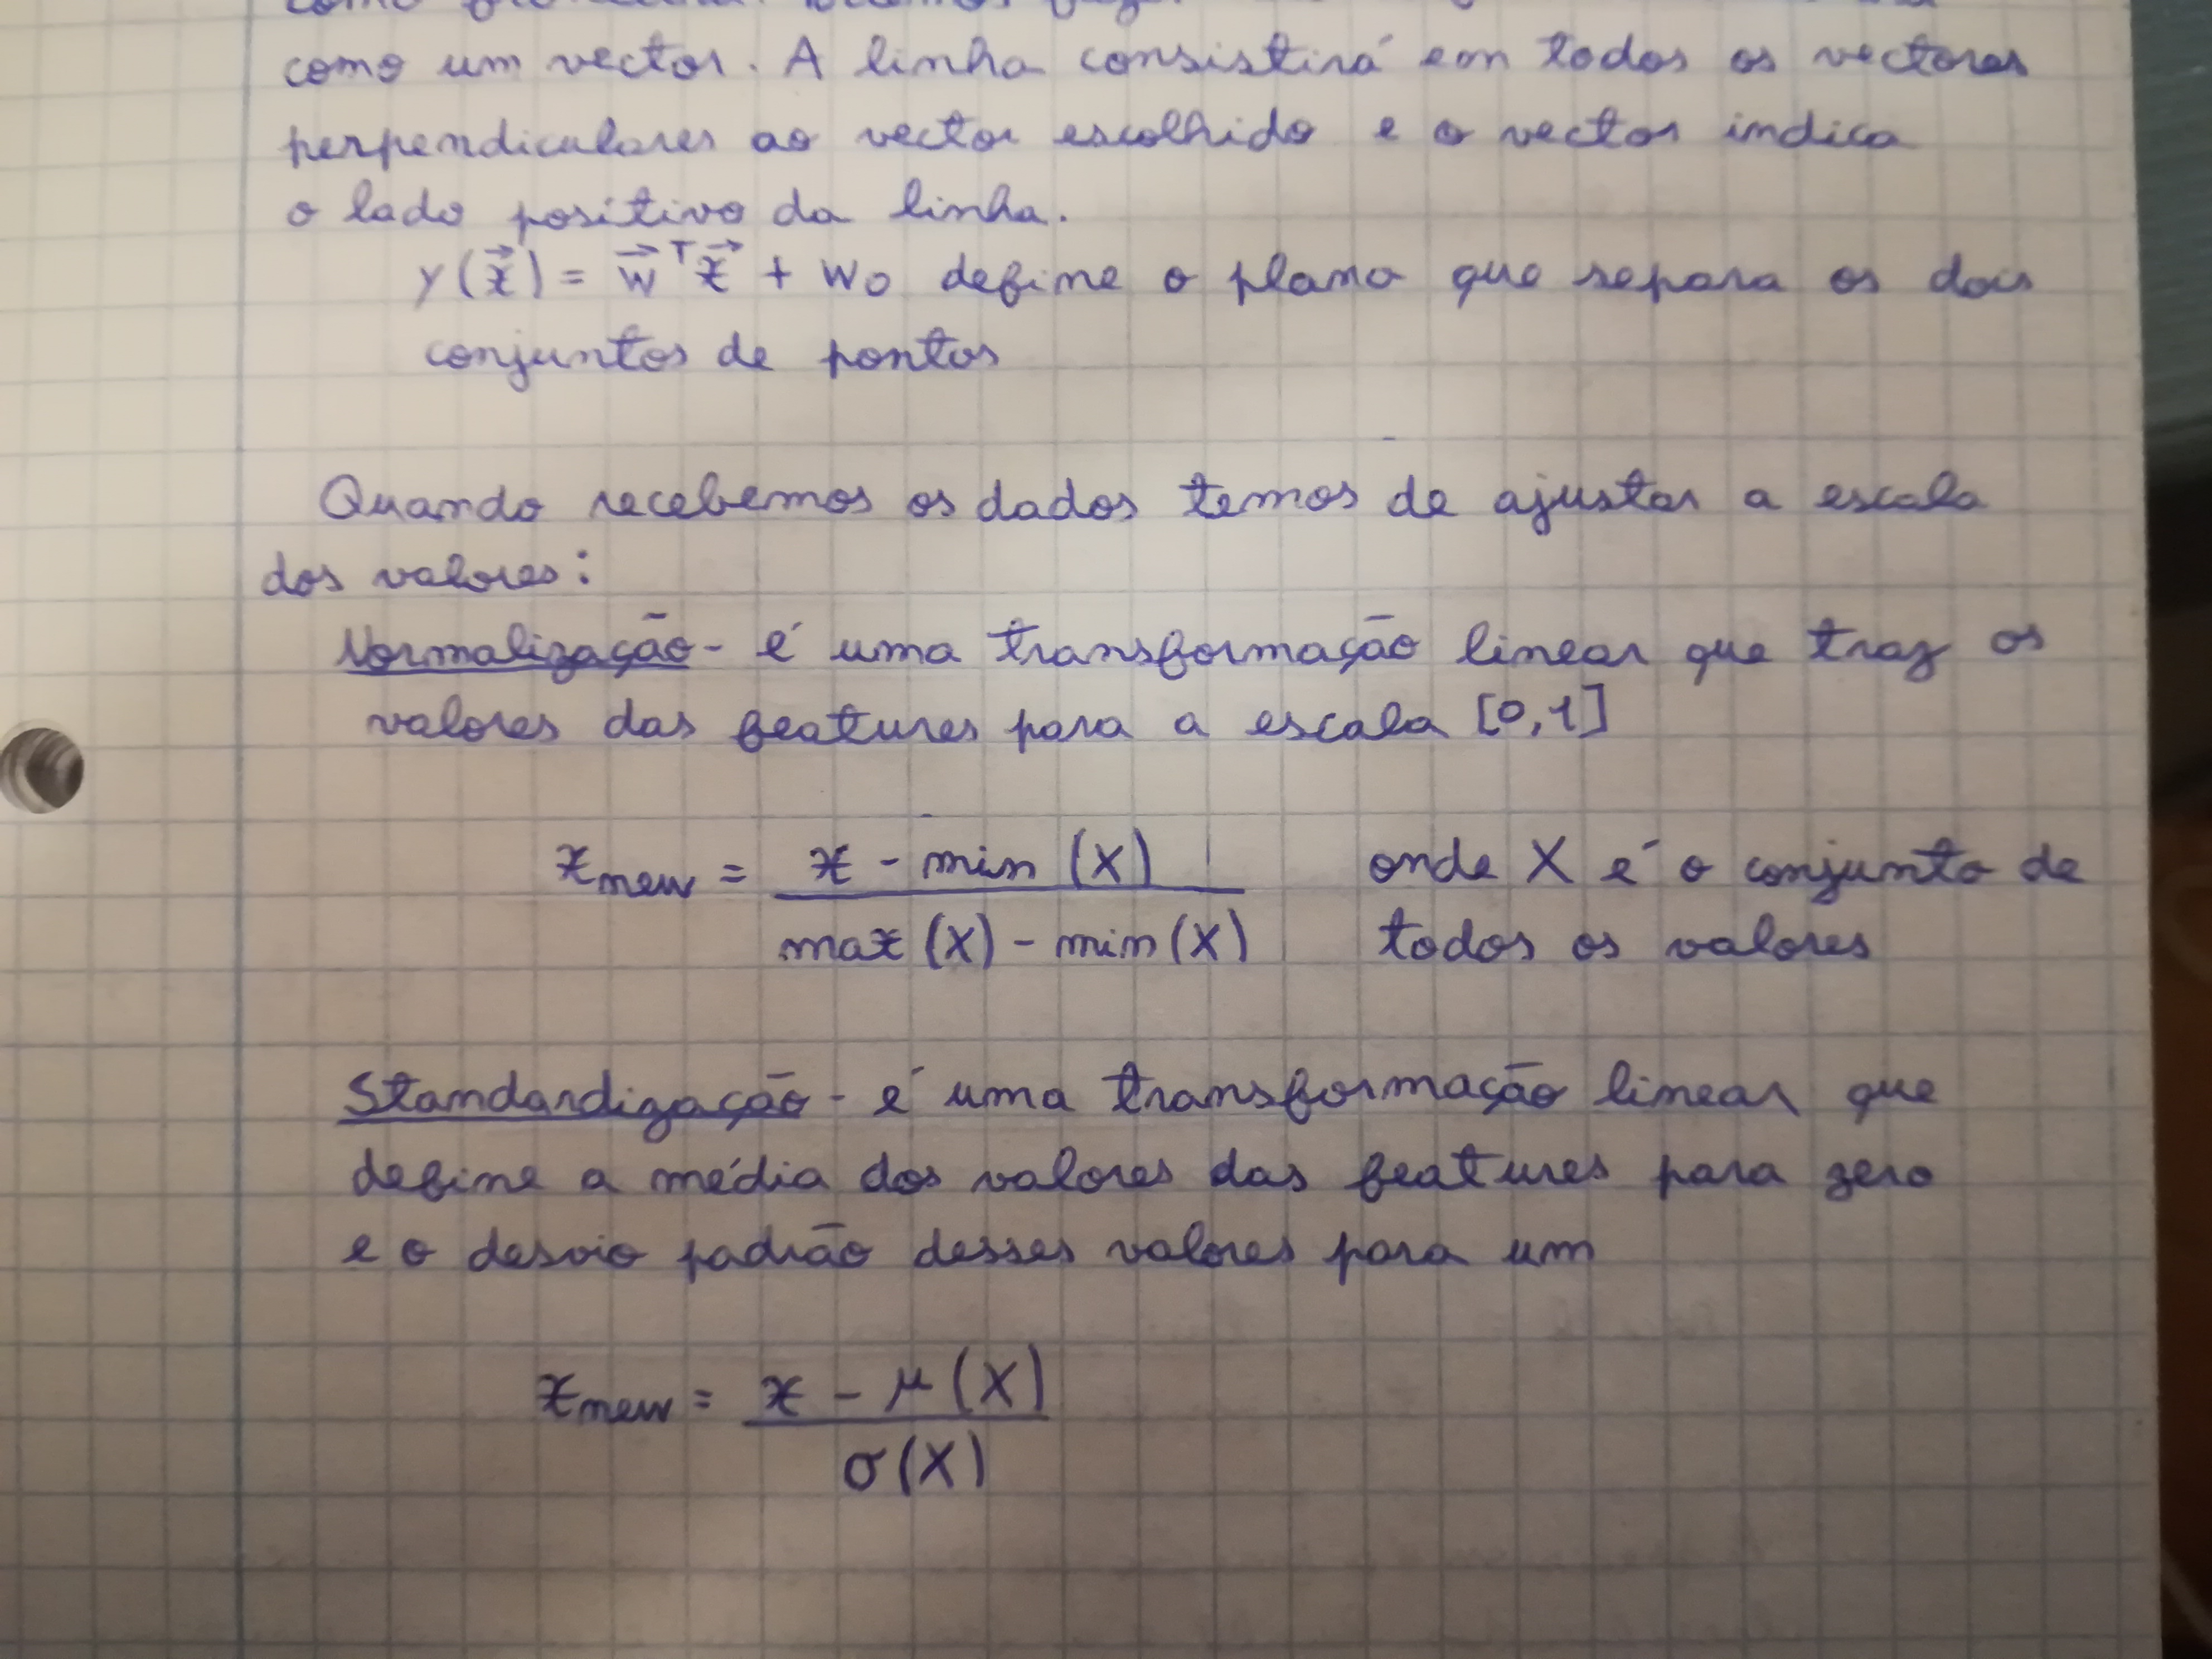 como fronteira
como um vector. A linha consistirá em todos os vectores
perpendiculares ao vector escolhido e o vector indica
o lado positivo da linha.
y(x⃗) = w⃗ᵀx⃗ + w₀ define o plano que separa os dois
conjuntos de pontos
Quando recebemos os dados temos de ajustar a escala
dos valores:
Normalização - é uma transformação linear que traz os
valores das features para a escala [0,1]
x_new = (x - min (X)) / (max (X) - min (X)) onde X é o conjunto de
todos os valores
Standardização - é uma transformação linear que
define a média dos valores das features para zero
e o desvio padrão desses valores para um
x_new = (x - μ(X)) / σ(X)